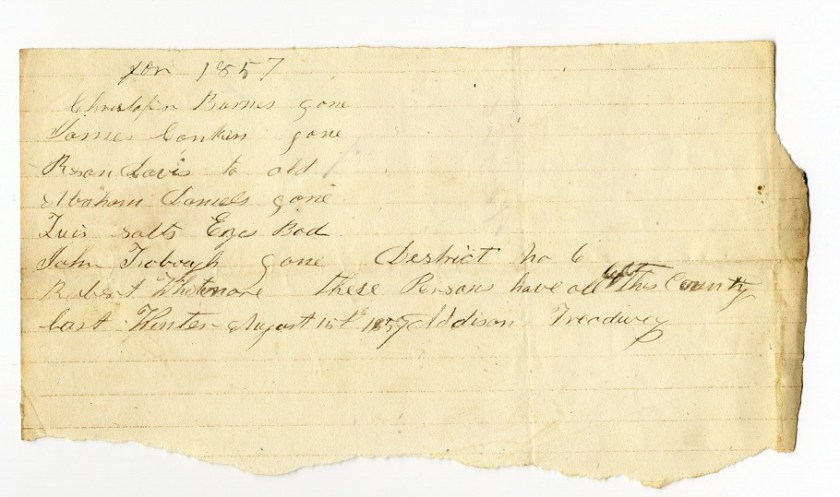 for 1857
Christopher Barnes gone
James Conkin gone
Davis to old
Abaham Daniels gone
Luis Salts Eyes Bad
John Trobough gone Destrict no 6
Robert Whitemore these Persons have all left This County
last Winter August 15th 1857 Addison Treadway